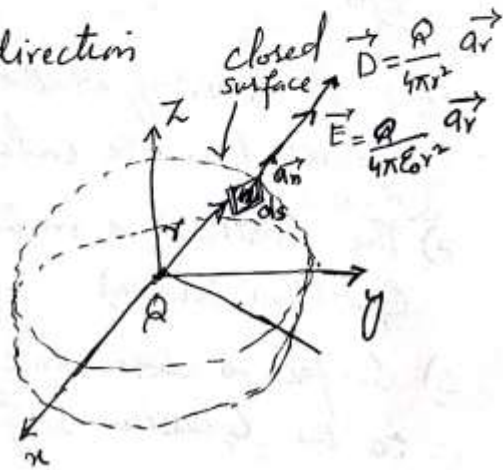 direction
closed
surface
D⃗ = Q/4πr² a⃗r
E⃗ = Q/4πε₀r² a⃗r
a⃗n
ds
z
r
Q
y
x